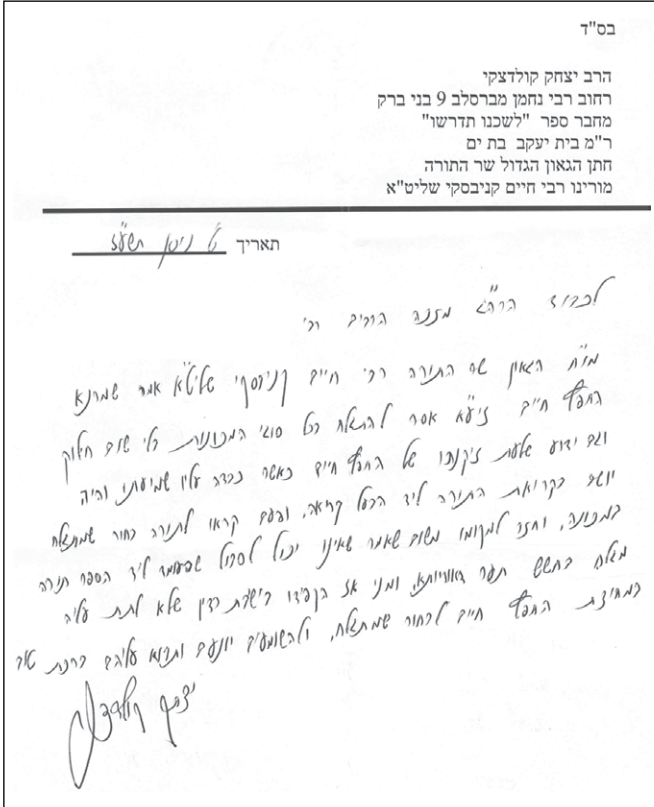 בס"ד
הרב יצחק קולדצקי
רחוב רבי נחמן מברסלב 9 בני ברק
מחבר ספר "לשכנו תדרשו"
ר"מ בית יעקב בת ים
חתן הגאון הגדול שר התורה
מורינו רבי חיים קניבסקי שליט"א
תאריך ט' ניסן תשע"ז
לכבוד הרה"ג מזכה הרבים ר'
מו"ח הגאון שר התורה רבי חיים קניבסקי שליט"א אמר שמרנא
החפץ חיים זיע"א אסר להתגלח בכל סוגי המכונות בלי שום חילוק
וגם ידוע שלעת זיקנתו של החפץ חיים כאשר כבדה עליו שמיעתו והיה
יושב בקריאת התורה ליד הבעל קריאה, ופעם קראו לתורה בחור שמתגלח
במכונה, וחזר למקומו משום שאמר שאינו יכול לסבול שבעמד ליד הספר תורה
מגולח בחשש תער דאורייתא, ומני אז הקפידו בישיבת ראדין שלא לתת עליה
במחיצת החפץ חיים לבחור שמתגלח, ולהשומעים יונעם ותבוא עליהם ברכת טוב
יצחק קולדצקי